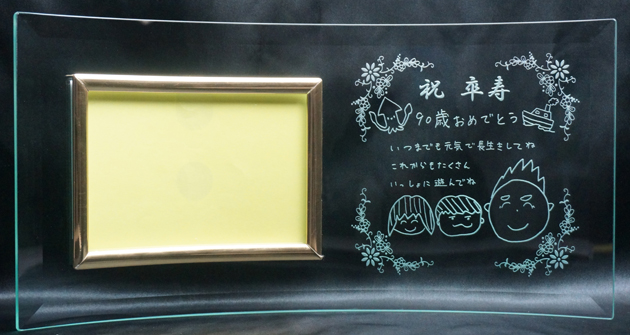 祝 卒寿
90歳おめでとう
いつまでも元気で長生きしてね
これからもたくさん
いっしょに遊んでね